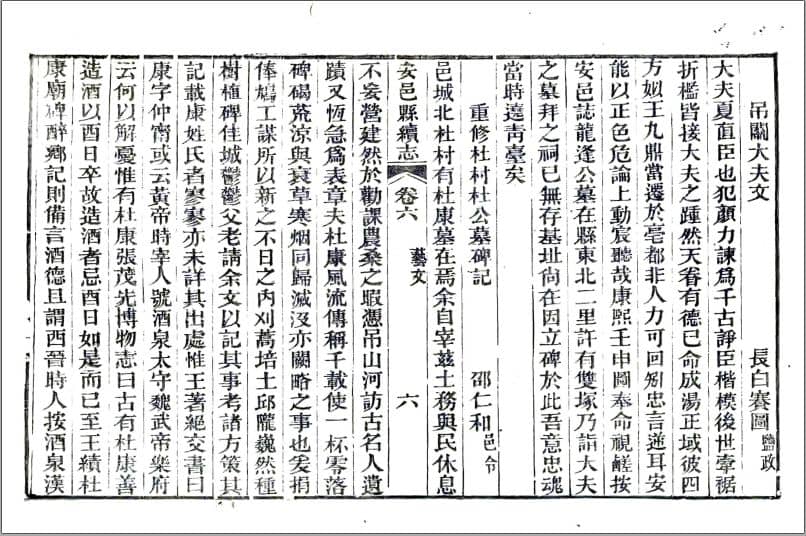 吊關大夫文　長白賽圖鹽政
大夫夏直臣也犯顏力諫爲千古諍臣楷模後世牽裾
折檻皆接大夫之踵然天眷有德已命成湯正域彼四
方姒王九鼎當遷於亳都非人力可回矧忠言逆耳安
能以正色危論上動宸聽哉康熙壬申圖奉命視鹺按
安邑誌龍逢公墓在縣東北二里許有雙塚乃詣大夫
之墓拜之祠已無存基址尙在因立碑於此吾意忠魂
當時遶靑臺矣
重修杜村杜公墓碑記　邵仁和邑令
邑城北杜村有杜康墓在焉余自宰茲土務與民休息
安邑縣續志　卷六　藝文　六
不妄營建然於勸課農桑之暇憑吊山河訪古名人遺
蹟又恆急爲表章夫杜康風流傳稱千載使一杯零落
碑碣荒涼與衰草寒烟同歸滅沒亦闕略之事也爰捐
俸鳩工謀所以新之不日之內刈蒿培土邱隴巍然種
樹植碑佳城鬱鬱父老請余文以記其事考諸方策其
記載康姓氏者寥寥亦未詳其出處惟王著絕交書曰
康字仲甯或云黃帝時宰人號酒泉太守魏武帝樂府
云何以解憂惟有杜康張茂先博物志曰古有杜康善
造酒以酉日卒故造酒者忌酉日如是而已至王績杜
康廟碑醉鄉記則備言酒德且謂西晉時人按酒泉漢